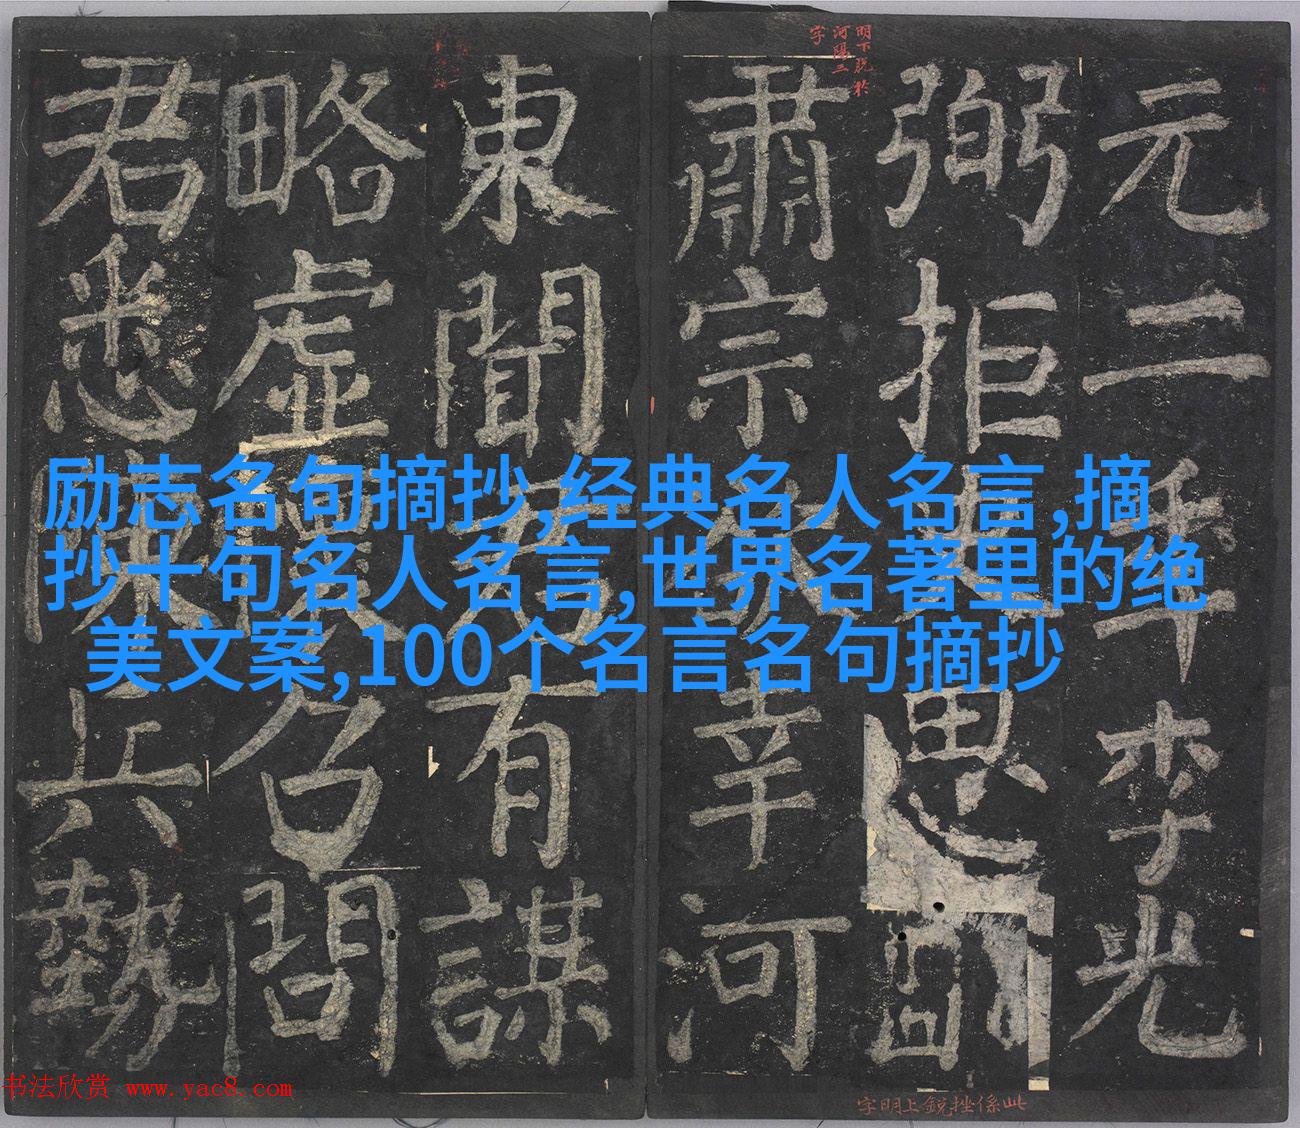 明下脱於
河陽二
字
元二年李光
弼拒思明
肅宗幸河
東聞君有謀
略虛召問
君悉陳兵勢
励志名句摘抄,经典名人名言,摘
抄十句名人名言,世界名著里的绝
美文案,100个名言名句摘抄
此係挫銳上明字
书法欣赏 www.yac8.com